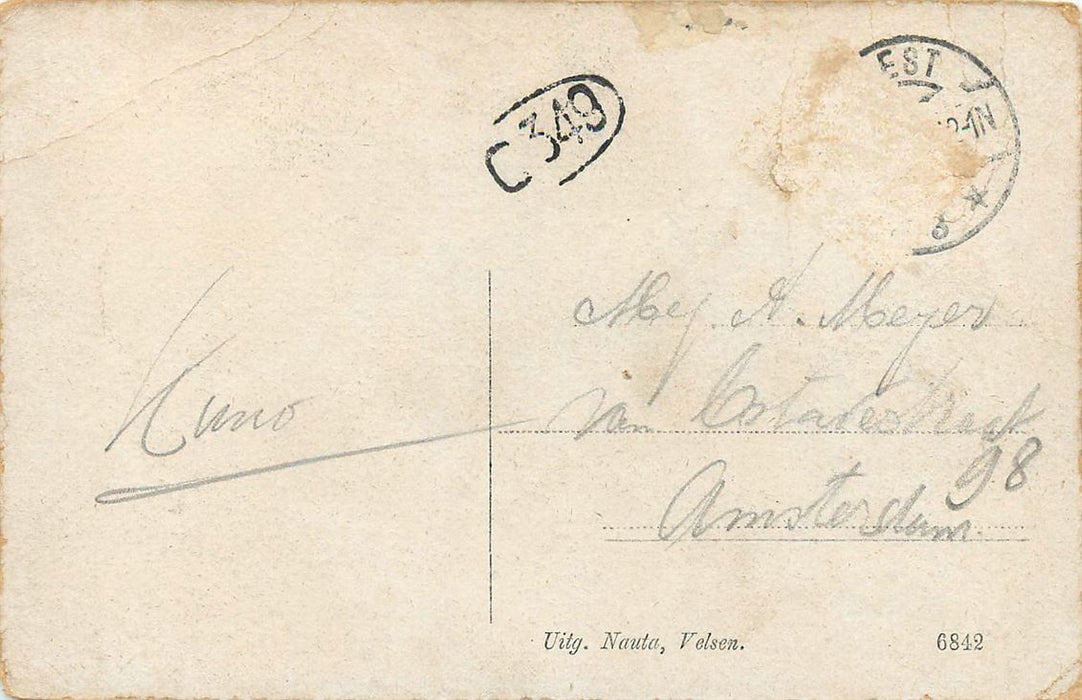 C 349
EST
Mej. A. Meyer
van Ostadestraat
98
Amsterdam.
Kuno
Uitg. Nauta, Velsen.
6842